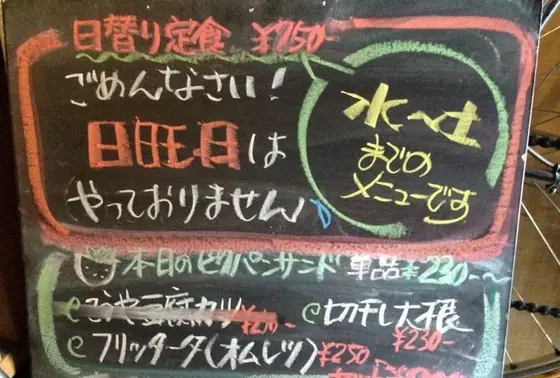 日替り定食 ¥750-
ごめんなさい!
日旺日は
やっておりません
水〜土
までの
メニューです
本日のピタパンサンド 単品¥230-
こうや豆腐カツ ¥270-
切干し大根 ¥230-
フリッタータ(オムレツ) ¥250